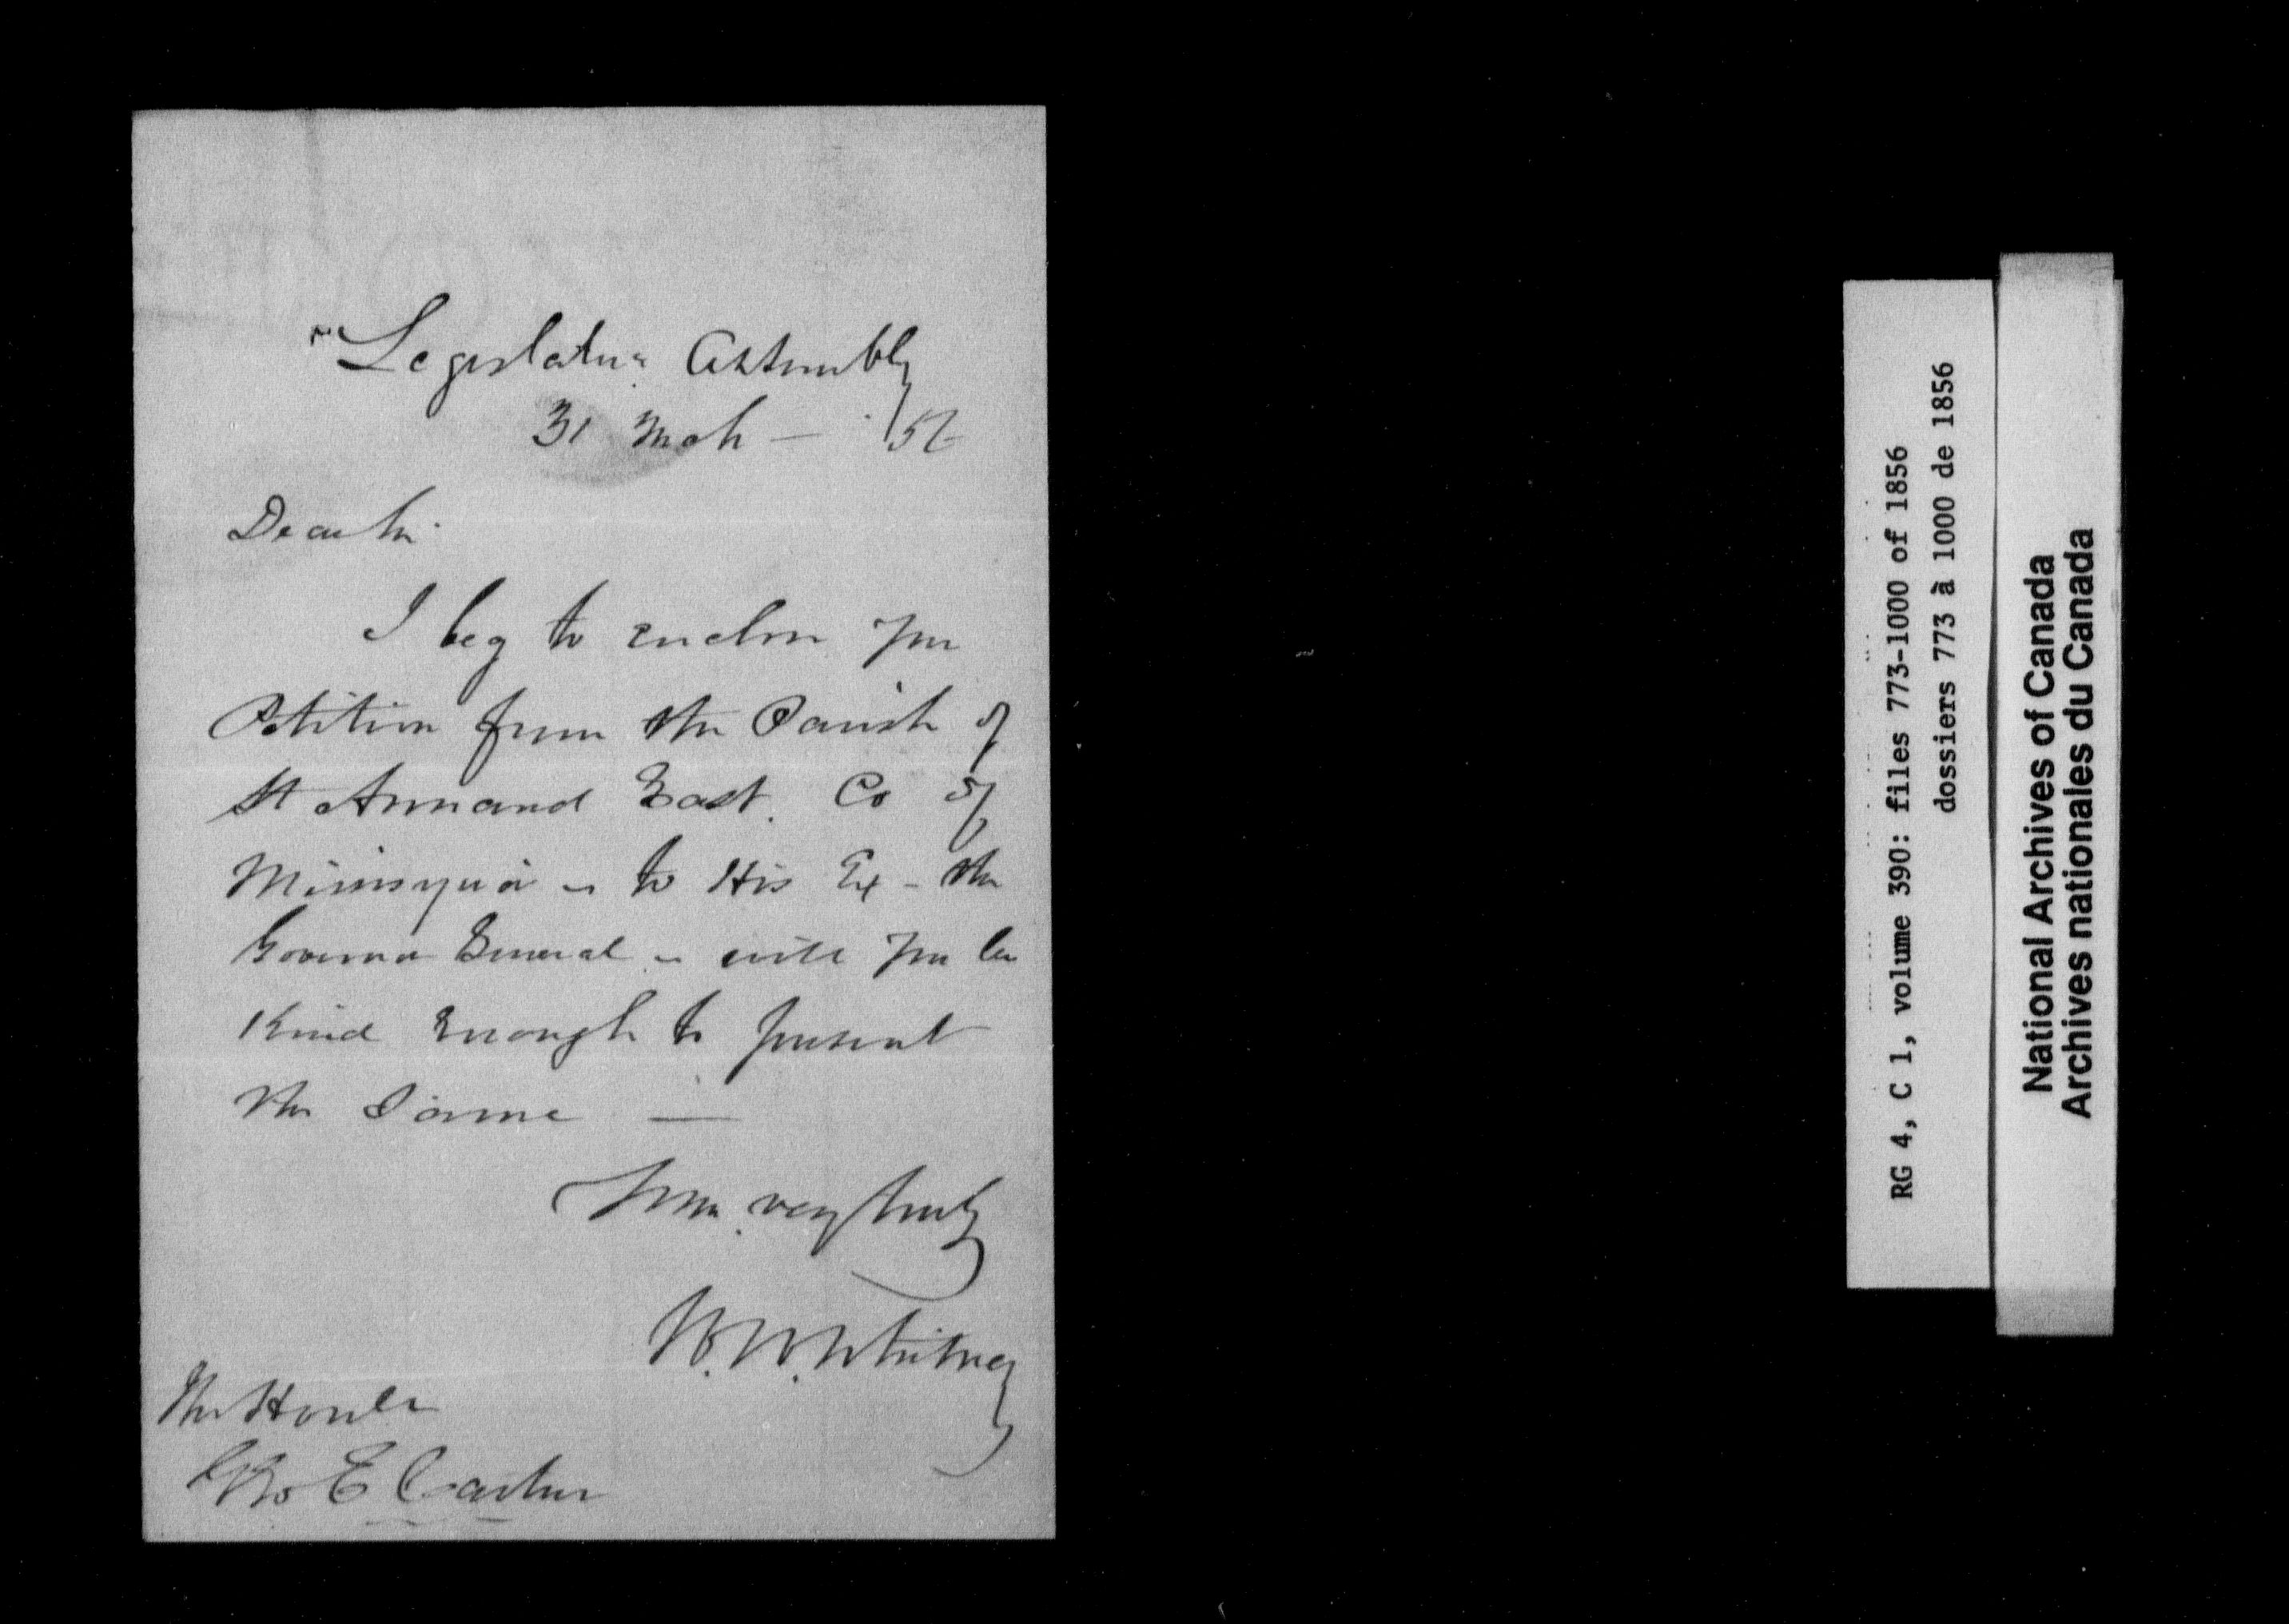 Legislative Assembly
31 Mch — /56
Dear Sir
I beg to enclose you
Petition from the Parish of
St Armand East. Co of
Missisquoi - to His Ex - the
Governor General - will you be
kind enough to present
the Same —
Yours very truly
W. W. Whitney
The Honble
Geo E Cartier
RG 4, C 1, volume 390: files 773-1000 of 1856
dossiers 773 à 1000 de 1856
National Archives of Canada
Archives nationales du Canada